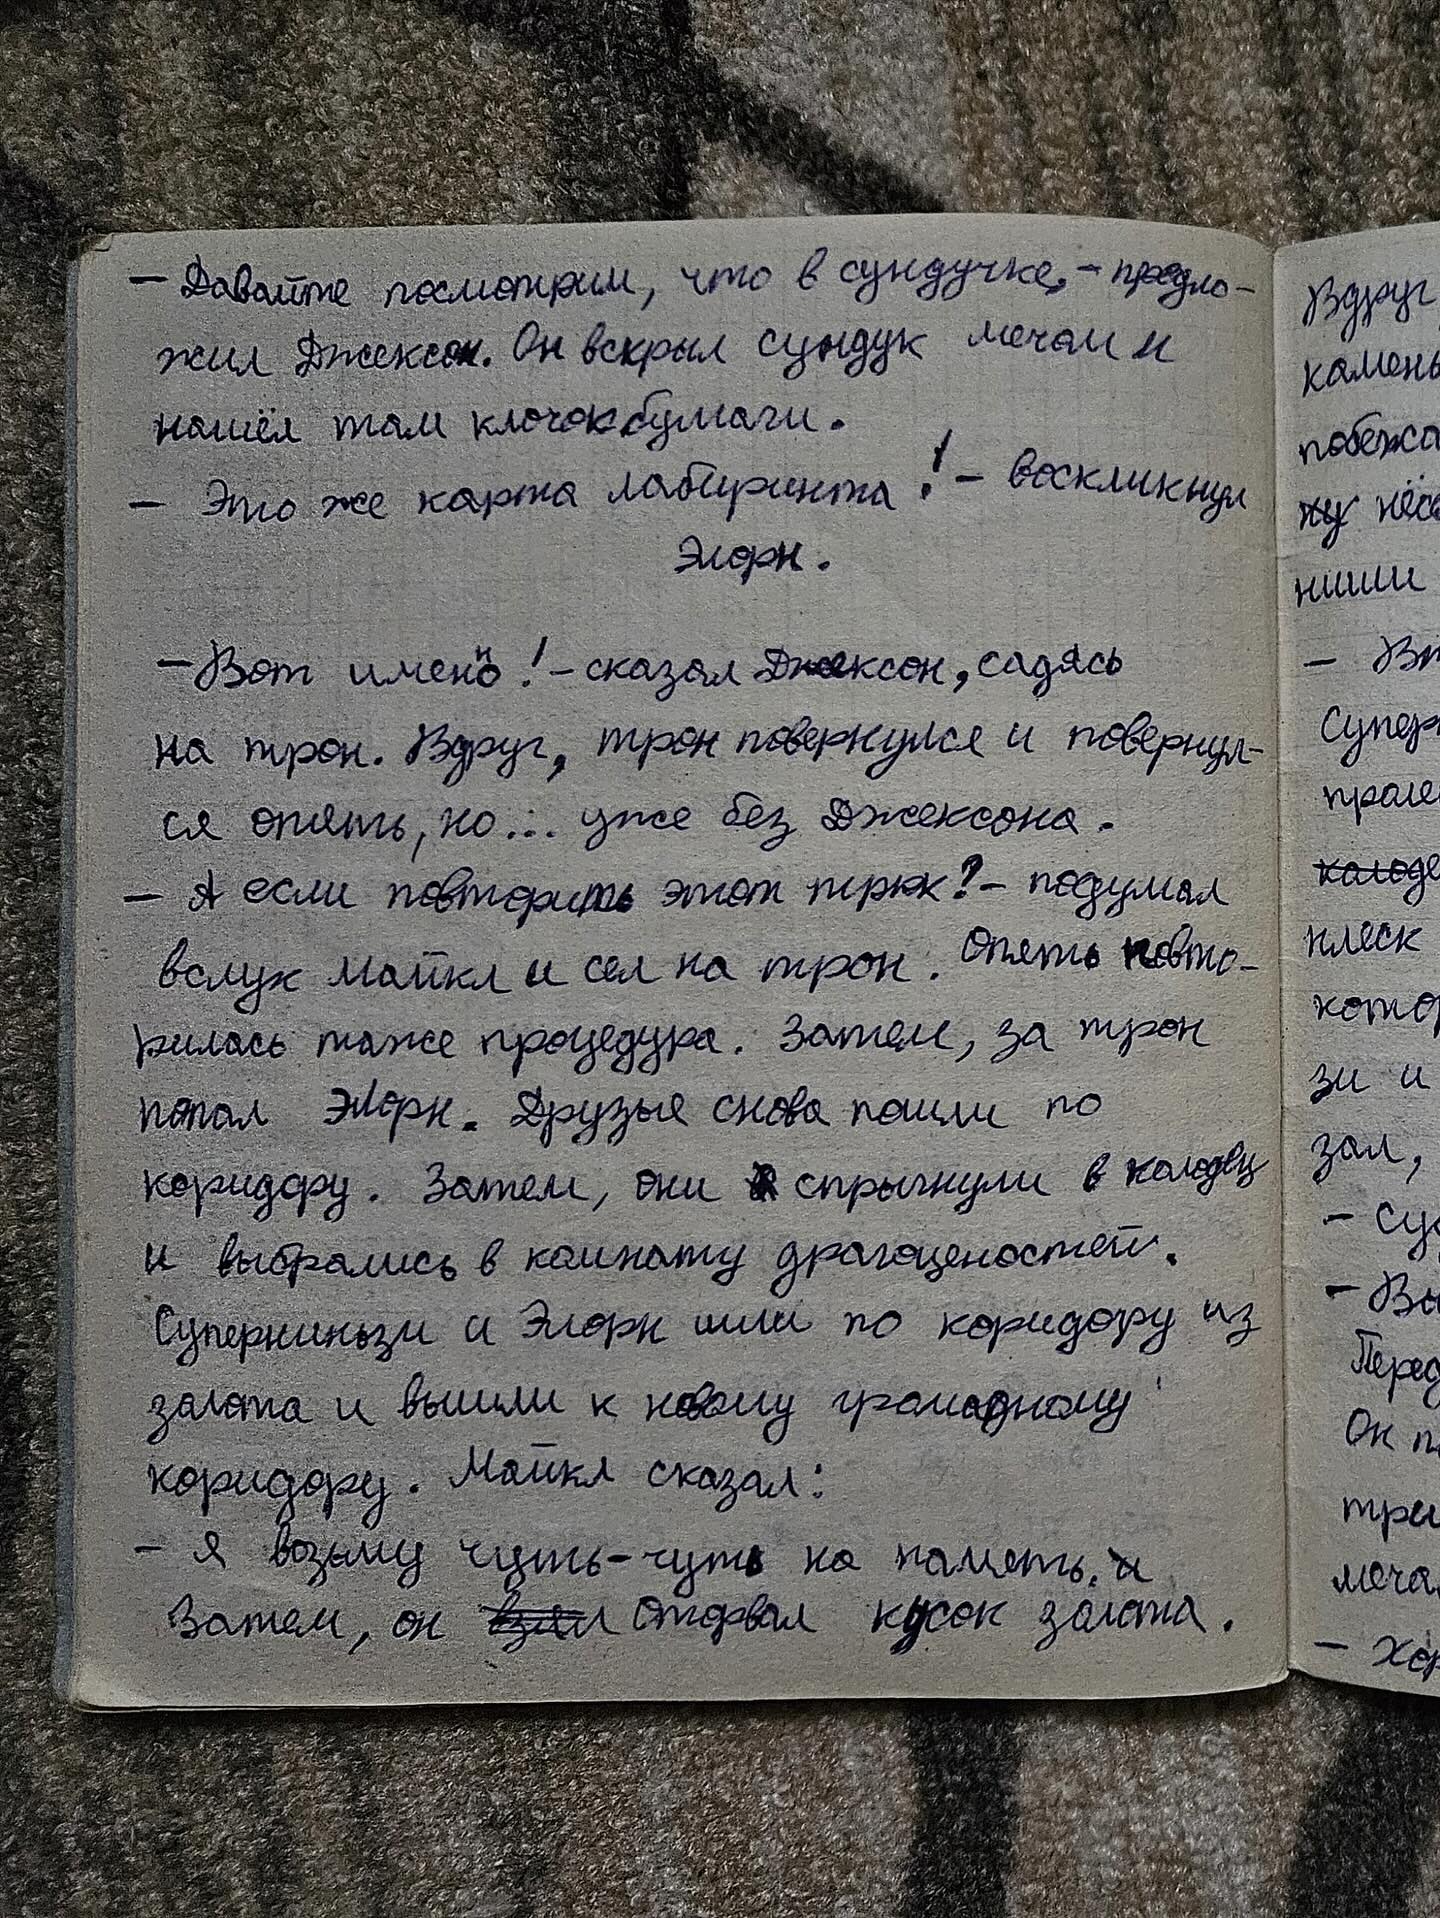 — Давайте посмотрим, что в сундучке, – предло-
жил Джексон. Он вскрыл сундук мечом и
нашёл там клочок бумаги.
— Это же карта лабиринта! – воскликнул
Элорн.
— Вот именно! – сказал Джексон, садясь
на трон. Вдруг, трон повернулся и повернул-
ся опять, но... уже без Джексона.
— А если повторить этот трюк? – подумал
вслух Майкл и сел на трон. Опять повто-
рилась таже процедура. Затем, за трон
попал Элорн. Друзья снова пошли по
коридору. Затем, они спрыгнули в колодец
и выбрались в комнату драгоценостей.
Суперниньзи и Элорн шли по коридору из
золота и вышли к новому громадному
коридору. Майкл сказал:
– Я возьму чуть-чуть на память.
Затем, он взял оторвал кусок золота.
Вдруг
камень
побежа
ну
ниши
–
Супер
проле
колоде
плеск
котор
зи и
зал,
– Су
– Вы
Перед
Он п
три
меча
– Хор